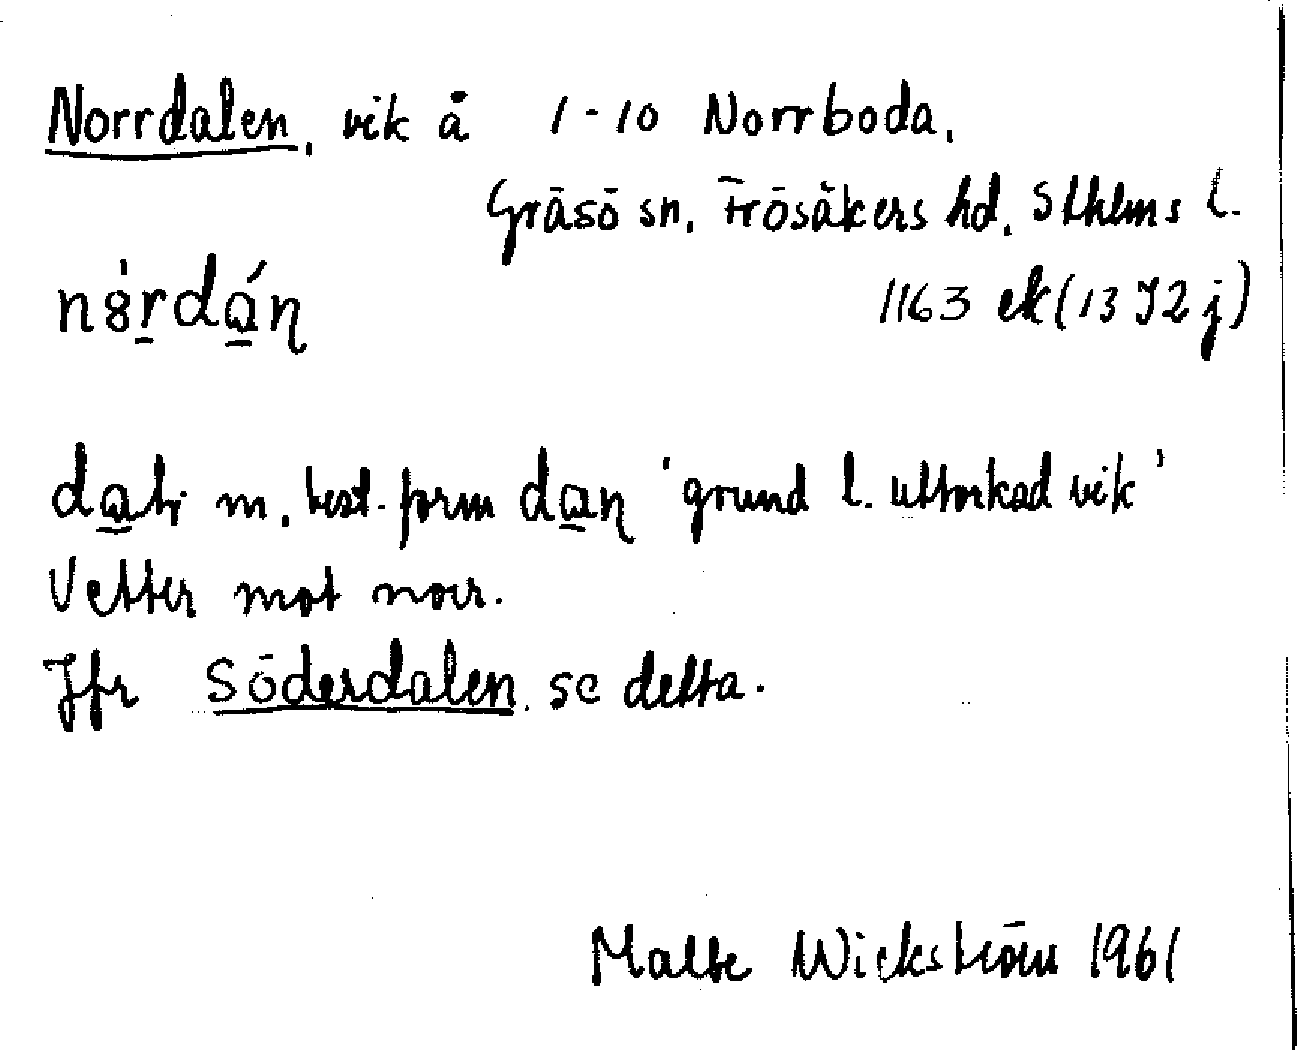 Norrdalen, vik å 1-10 Norrboda,
Gräsö sn, Frösåkers hd, Sthlms l.
1163 ek (13 I 2 j)
m, best. form dan 'grund l. uttorkad vik'
Vetter mot norr.
Jfr Söderdalen, se detta.
Malte Wickström 1961